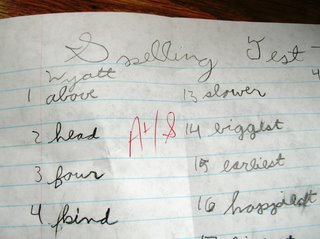 Spelling Test
Wyatt
A+/S
1 above
2 head
3 four
4 kind
13 slower
14 biggest
15 earliest
16 happiest